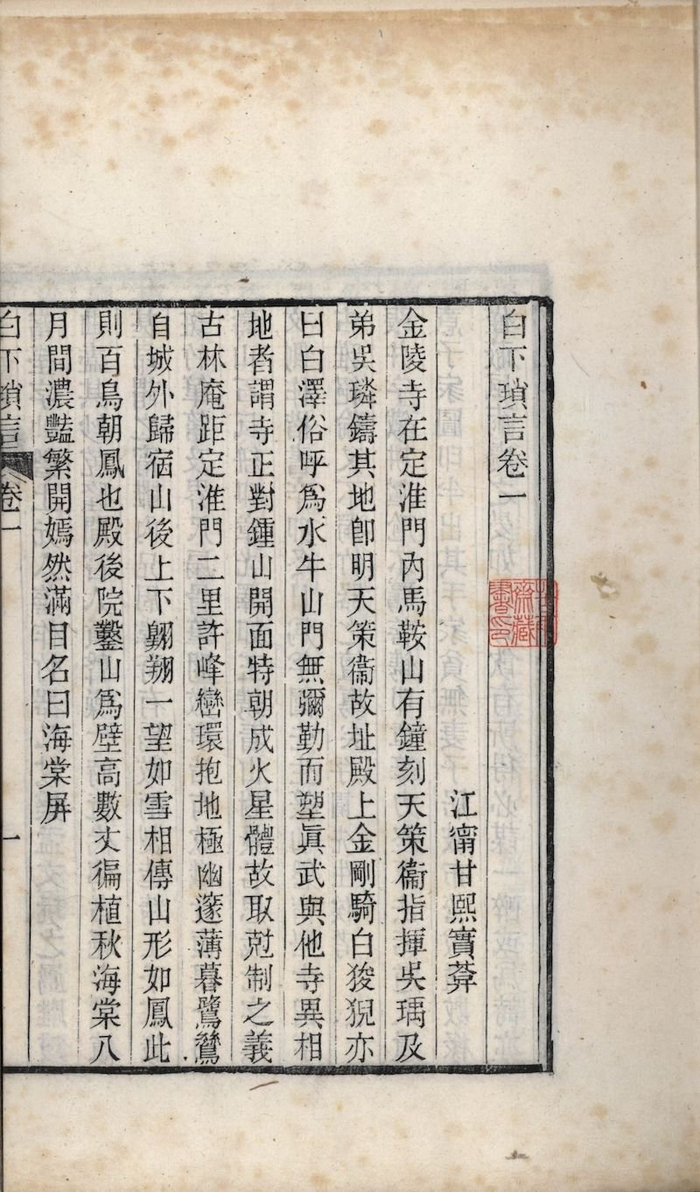 白下瑣言卷一
江甯甘熙實菴
金陵寺在定淮門內馬鞍山有鐘刻天策衞指揮吳瑀及
弟吳璘鑄其地卽明天策衞故址殿上金剛騎白狻猊亦
曰白澤俗呼爲水牛山門無彌勒而塑眞武與他寺異相
地者謂寺正對鍾山開面特朝成火星體故取尅制之義
古林庵距定淮門二里許峰巒環抱地極幽邃薄暮鷺鷥
自城外歸宿山後上下翺翔一望如雪相傳山形如鳳此
則百鳥朝鳳也殿後院鑿山爲壁高數丈徧植秋海棠八
月間濃豔繁開嫣然滿目名曰海棠屏
白下瑣言 卷一 一
齋藏書印